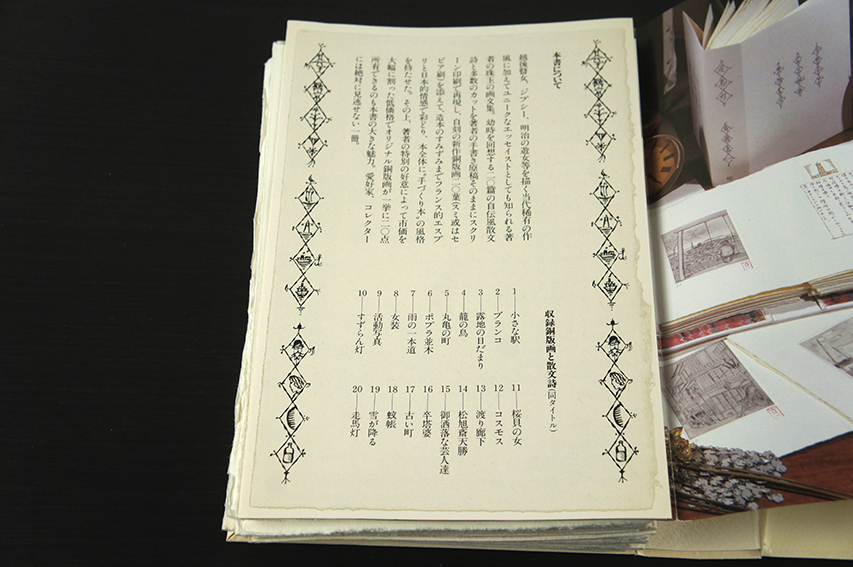 本書について
越後瞽女、ジプシー、明治の遊女等を描く当代稀有の作
風に加えてユニークなエッセイストとしても知られる著
者の珠玉の画文集。幼時を回想する二〇篇の自伝風散文
詩と多数のカットを著者の手書き原稿そのままにスクリ
ーン印刷で再現し、自刻の新作銅版画二〇葉(スミ或はセ
ピア刷)を添えて、造本のすみずみまでフランス的エスプ
リと日本的情感で彩どり、本全体に“手づくり本”の風格
を持たせた。その上、著者の特別の好意によって市価を
大幅に割った低価格でオリジナル銅版画が一挙に二〇点
所有できるのも本書の大きな魅力。愛好家、コレクター
には絶対に見逃せない一冊。
収録銅版画と散文詩(同タイトル)
1—小さな駅
2—ブランコ
3—露地の日だまり
4—籠の鳥
5—丸亀の町
6—ポプラ並木
7—雨の一本道
8—女装
9—活動写真
10—すずらん灯
11—桜貝の女
12—コスモス
13—渡り廊下
14—松旭斎天勝
15—御洒落な芸人達
16—卒塔婆
17—古い町
18—蚊帳
19—雪が降る
20—走馬灯